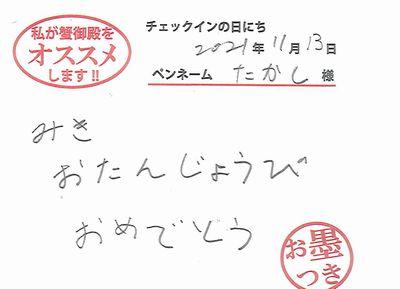 私が蟹御殿を
オススメ
します!!
チェックインの日にち
2021年11月13日
ペンネーム たかし 様
みき
おたんじょうび
おめでとう
お墨
つき